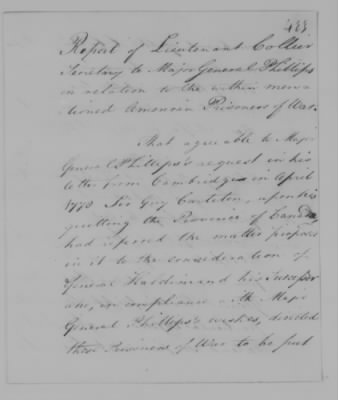 433
Report of Lieutenant Collier
Secretary to Major General Phillips
in relation to the within men-
tioned American Prisoners of War.
That agreeable to Major
General Phillips's request in his
letter from Cambridge in April
1778 Sir Guy Carleton, upon his
quitting the Province of Canada,
had referred the matter proposed
in it to the consideration of
General Haldimand his Successor
who, in compliance with Major
General Phillips's wishes, directed
these Prisoners of War to be put